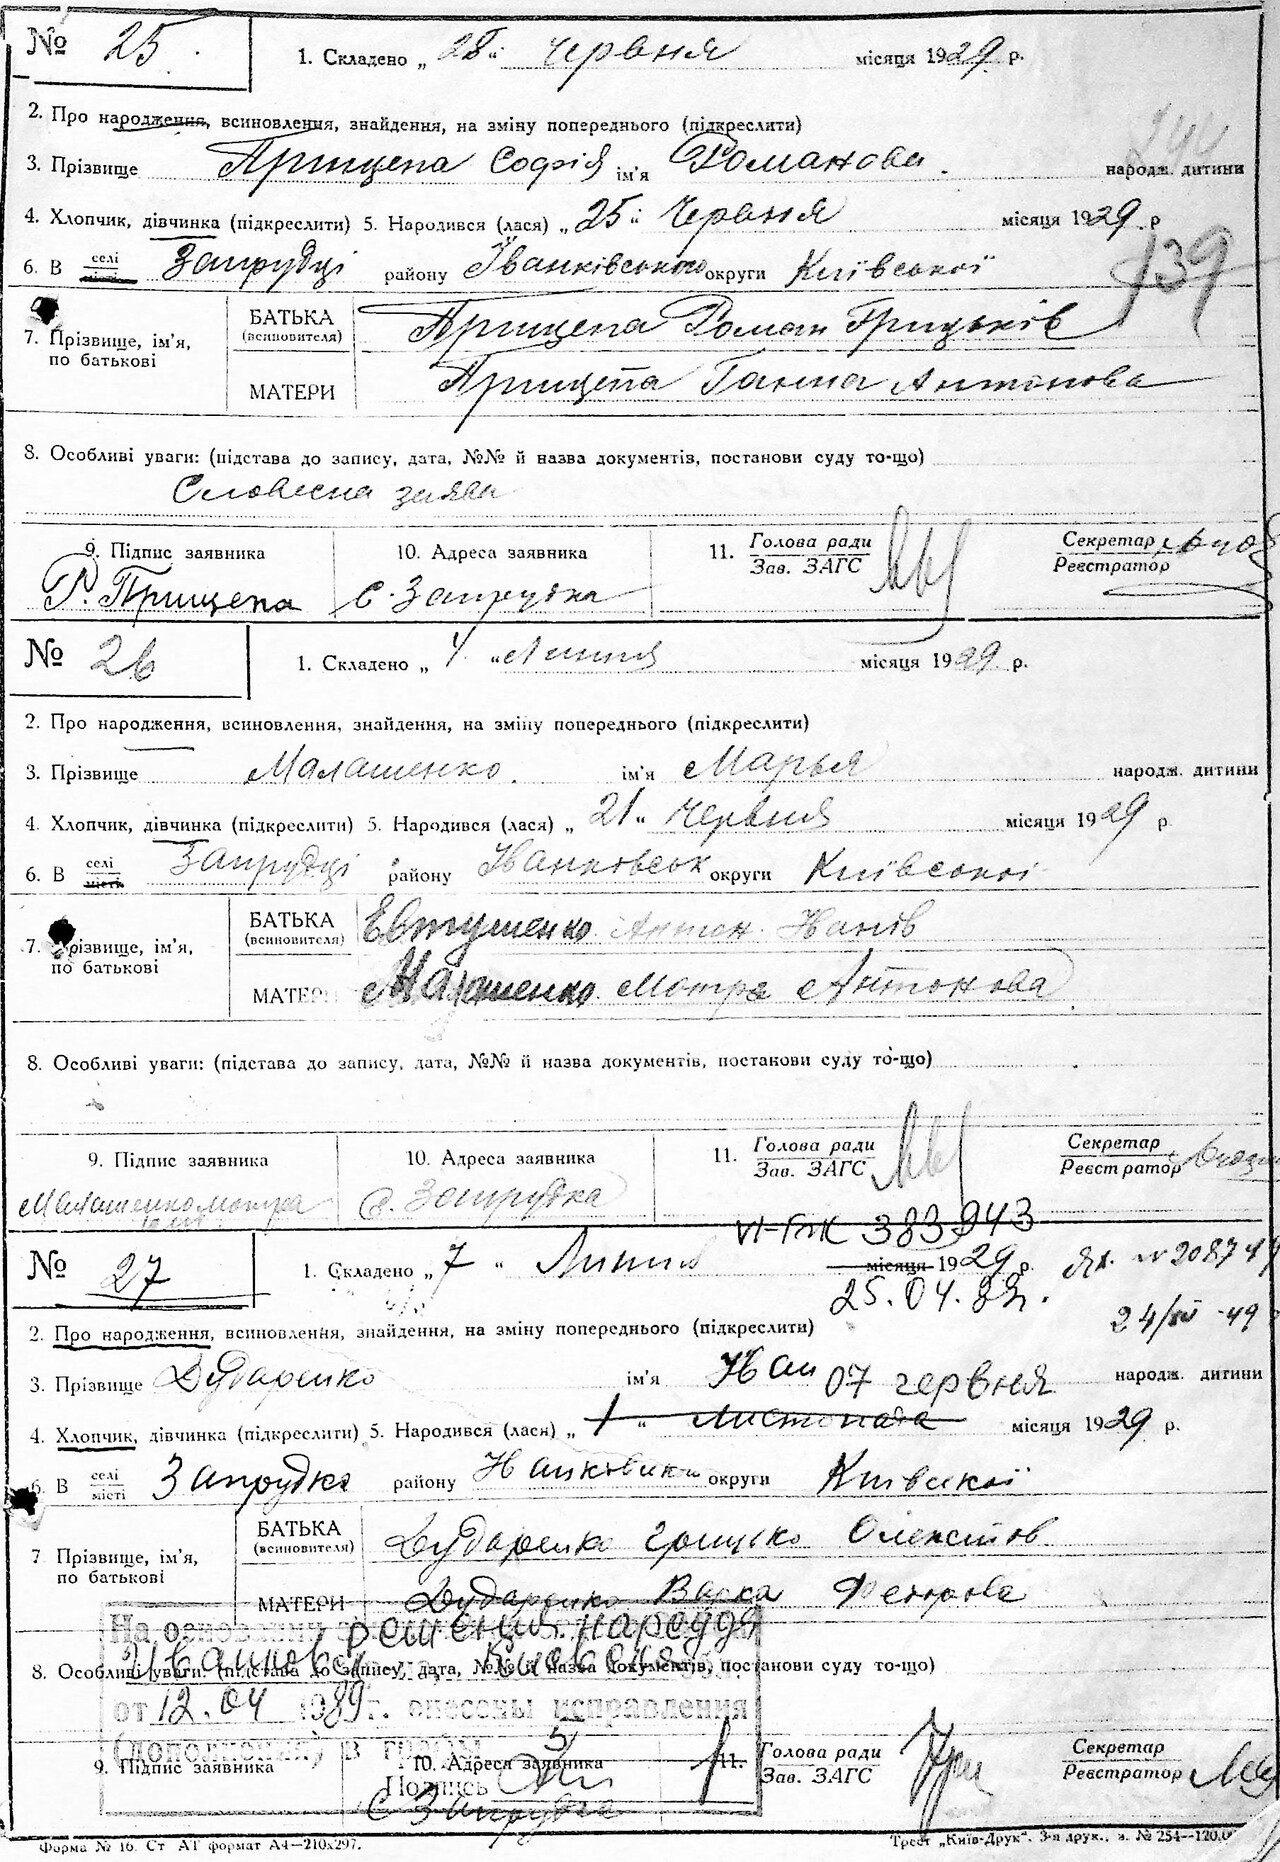 № 25. 1. Складено „28" Червня місяця 1929 р.
2. Про народження, всиновлення, знайдення, на зміну попереднього (підкреслити)
3. Прізвище Прищепа Софія ім'я Романова народж. дитини
4. Хлопчик, дівчинка (підкреслити) 5. Народився (лася) „25" Червня місяця 1929 р
6. В селі місті Запрудці району Іванківського округи Київської
139
7. Прізвище, ім'я, по батькові
БАТЬКА (всиновителя) Прищепа Роман Грицьків
МАТЕРИ Прищепа Ганна Антонова
8. Особливі уваги: (підстава до запису, дата, №№ й назва документів, постанови суду то-що)
Словесна заява
9. Підпис заявника 10. Адреса заявника 11. Голова ради Зав. ЗАГС Секретар Реєстратор
Р. Прищепа с. Запрудка
№ 26 1. Складено „4" Липня місяця 1929 р.
2. Про народження, всиновлення, знайдення, на зміну попереднього (підкреслити)
3. Прізвище Малашенко. ім'я Марья народж. дитини
4. Хлопчик, дівчинка (підкреслити) 5. Народився (лася) „21" Червня місяця 1929 р
6. В селі місті Запрудці району Іванковськ округи Київської
7. Прізвище, ім'я, по батькові
БАТЬКА (всиновителя) Евтушенко Антон Іванів
МАТЕРИ Малашенко Мотря Антонова
8. Особливі уваги: (підстава до запису, дата, №№ й назва документів, постанови суду то-що)
9. Підпис заявника 10. Адреса заявника 11. Голова ради Зав. ЗАГС Секретар Реєстратор
Малашенко Мотря с. Запрудка
VI-БК 383943
№ 27 1. Складено „7" Липня місяця 1929 р. № 208749
25.04.89. 24/III-49
2. Про народження, всиновлення, знайдення, на зміну попереднього (підкреслити)
3. Прізвище Дударенко ім'я Іван народж. дитини
07 червня
4. Хлопчик, дівчинка (підкреслити) 5. Народився (лася) „1" листопада місяця 1929 р.
6. В селі місті Запрудка району округи Київської
7 Прізвище, ім'я, по батькові
БАТЬКА (всиновителя) Дударенко Грицько
МАТЕРИ Дударенко Варка
На основании решения нарсуда
8. Особливі уваги: (підстава до запису, дата, №№ й назва документів, постанови суду то-що)
от 12.04 1989 г. внесены исправления
(дополнения) в графы 5
9. Підпис заявника 10. Адреса заявника 11. Голова ради Зав. ЗАГС Секретар Реєстратор
Подпись
с Запрудка
Форма № 16. Ст АТ формат А4—210x297. Трест „Київ-Друк". 3-я друк., з. № 254—120,0